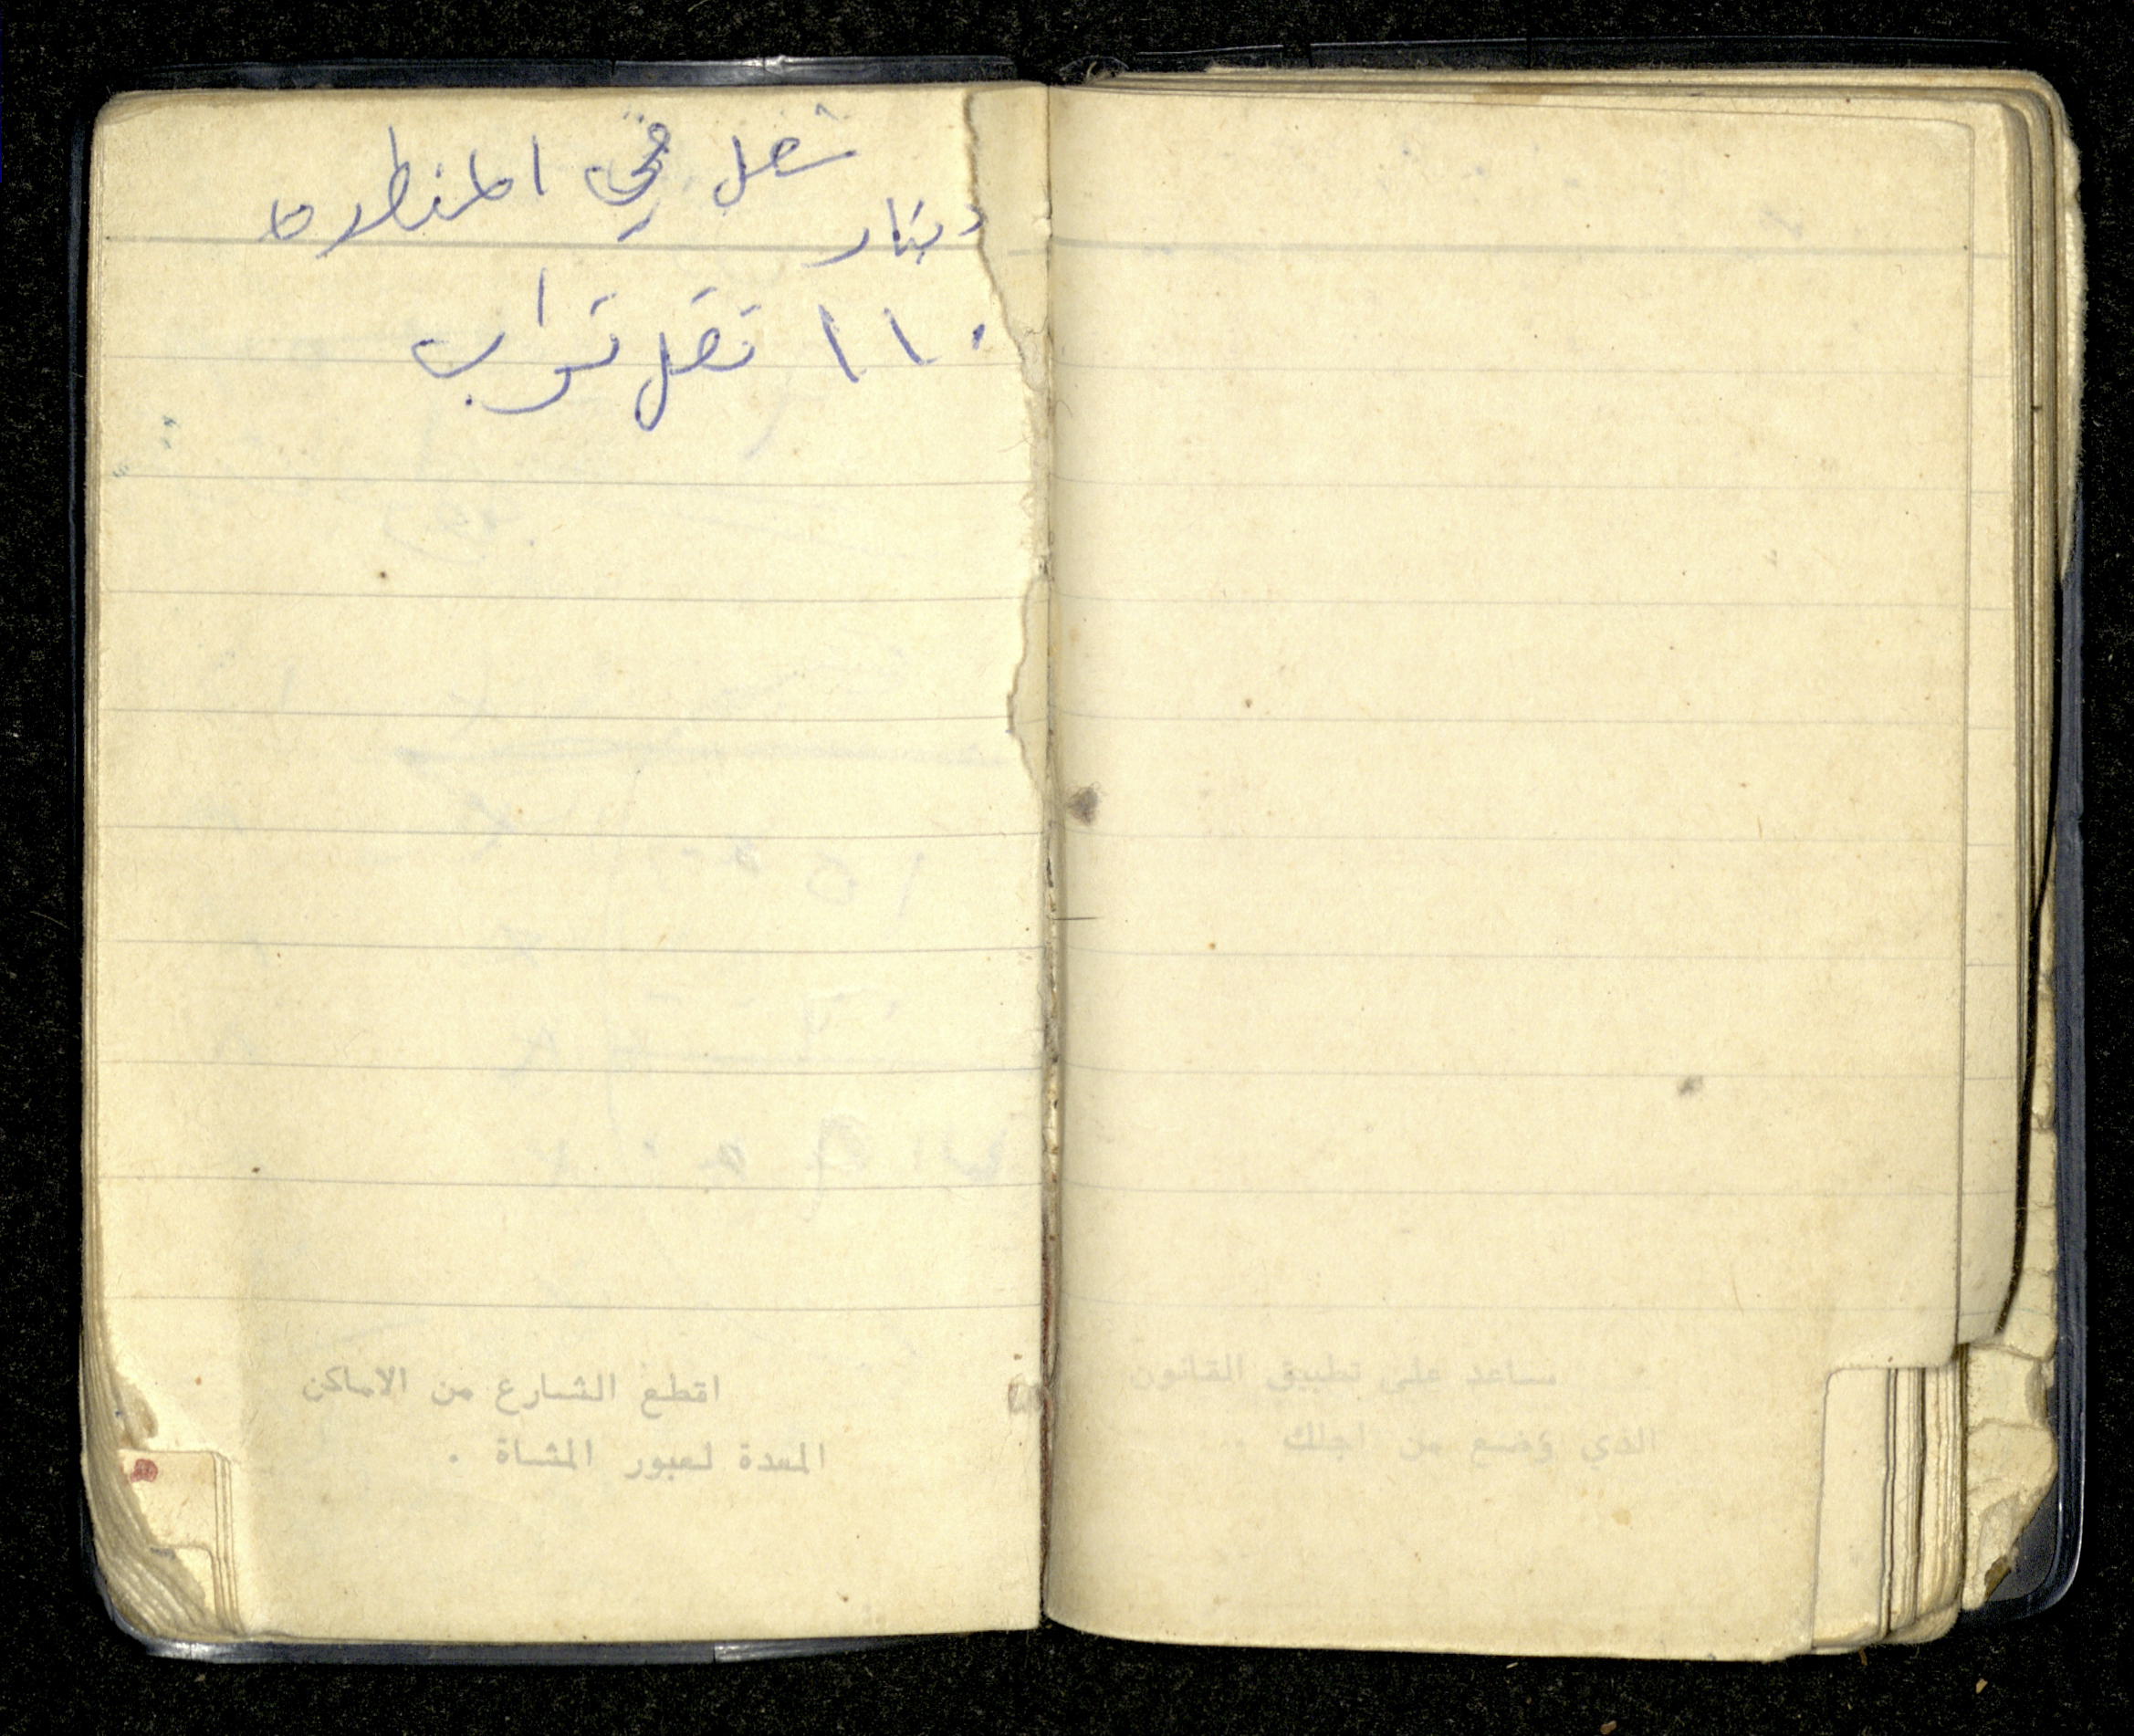 شغل في المنطره
دينار
١١٠ نقل تراب
اقطع الشارع من الاماكن
المعدة لعبور المشاة .
ساعد على تطبيق القانون
الذي وضع من اجلك